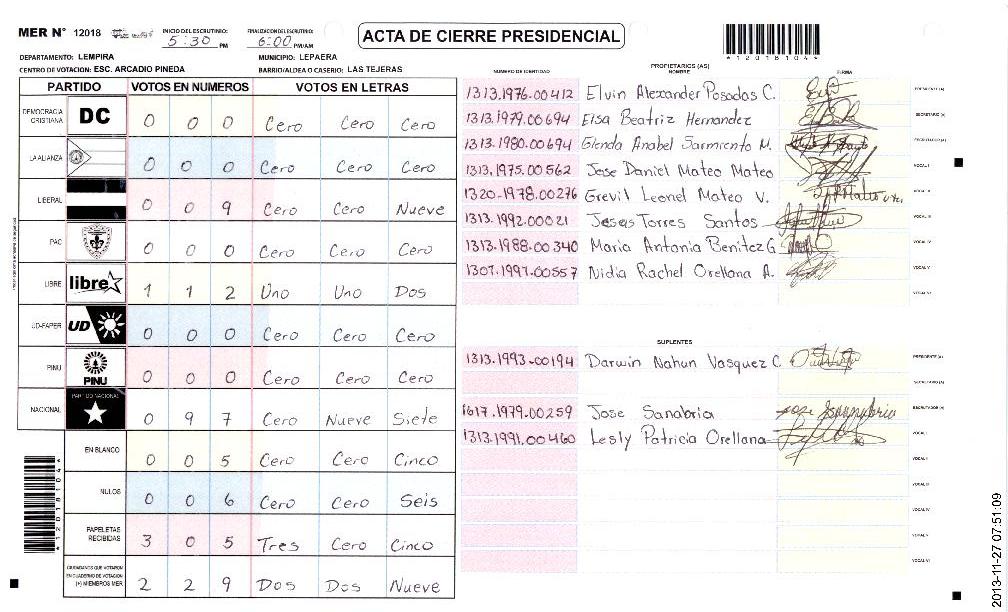 MER N° 12018
INICIO DEL ESCRUTINIO: 5:30 PM
FINALIZACION DEL ESCRUTINIO: 6:00 PM/AM
ACTA DE CIERRE PRESIDENCIAL
*12018104*
DEPARTAMENTO: LEMPIRA
MUNICIPIO: LEPAERA
CENTRO DE VOTACION: ESC. ARCADIO PINEDA
BARRIO/ALDEA O CASERIO: LAS TEJERAS
PARTIDO VOTOS EN NUMEROS VOTOS EN LETRAS
DEMOCRACIA CRISTIANA DC 0 0 0 Cero Cero Cero
LA ALIANZA 0 0 0 Cero Cero Cero
LIBERAL 0 0 9 Cero Cero Nueve
PAC 0 0 0 Cero Cero Cero
LIBRE libre 1 1 2 Uno Uno Dos
UD-FAPER UD 0 0 0 Cero Cero Cero
PINU PINU 0 0 0 Cero Cero Cero
NACIONAL PARTIDO NACIONAL 0 9 7 Cero Nueve Siete
EN BLANCO 0 0 5 Cero Cero Cinco
NULOS 0 0 6 Cero Cero Seis
PAPELETAS RECIBIDAS 3 0 5 Tres Cero Cinco
CIUDADANOS QUE VOTARON EN CUADERNO DE VOTACION (+) MIEMBROS MER 2 2 9 Dos Dos Nueve
*12018104*
PROPIETARIOS (AS)
NUMERO DE IDENTIDAD NOMBRE FIRMA
1313.1976.00412 Elvin Alexander Posadas C. PRESIDENTE (A)
1313.1979.00694 Elsa Beatriz Hernandez SECRETARIO (A)
1313.1980.00694 Glenda Anabel Sarmiento M. ESCRUTADOR (A)
1313.1975.00562 Jose Daniel Mateo Mateo VOCAL I
1320-1978.00276 Grevil Leonel Mateo V. VOCAL II
1313.1992.00021 Jesus Torres Santos VOCAL III
1313.1988.00340 Maria Antonia Benitez G VOCAL IV
1307.1997.00557 Nidia Rachel Orellana A. VOCAL V
VOCAL VI
SUPLENTES
1313.1993-00194 Darwin Nahun Vasquez C PRESIDENTE (A)
SECRETARIO (A)
1617.1979.00259 Jose Sanabria ESCRUTADOR (A)
1313.1991.00460 Lesly Patricia Orellana VOCAL I
VOCAL II
VOCAL III
VOCAL IV
VOCAL V
VOCAL VI
2013-11-27 07:51:09